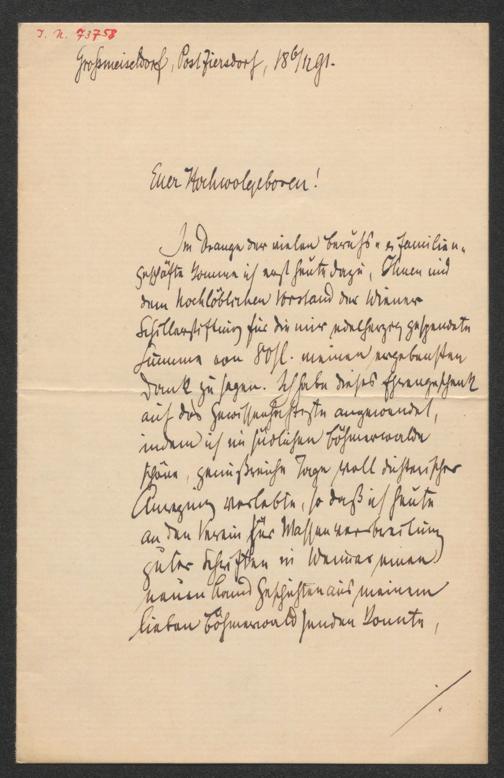 I. N. 73758
Großmeiseldorf, Post Ziersdorf, 18 6/12 91.
Euer Hochwolgeboren!
Im Drange der vielen Berufs- & Familien-
geschäfte komme ich erst heute dazu, Ihnen und
dem hochlöblichen Vorstand der Wiener
Schillerstiftung für die mir edelherzig gespendete
Summe von 80 fl. meinen ergebensten
Dank zu sagen. Ich habe dieses Ehrengeschenk
auf das gewissenhafteste angewendet,
indem ich im südlichen Böhmerwalde
schöne, genußreiche Tage voll dichterischer
Anregung verlebte, so daß ich heute
an den Verein für Massenverbreitung
guter Schriften in Weimar einen
neuen Band Geschichten aus meinem
lieben Böhmerwald senden konnte,
./.